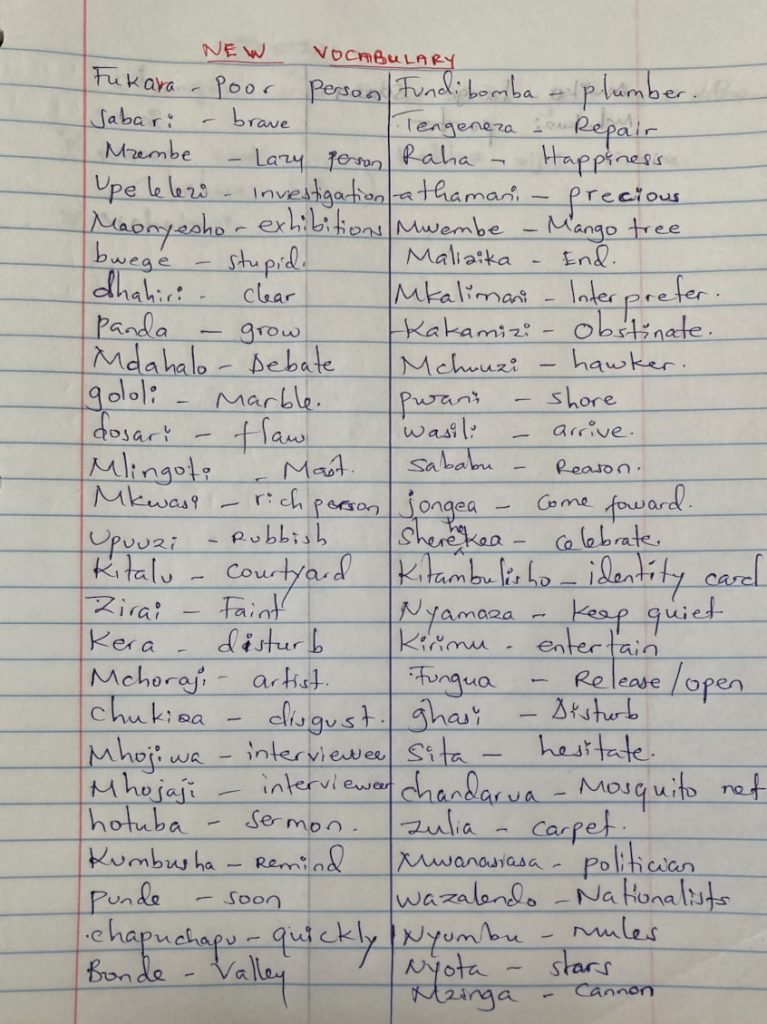 NEW VOCABULARY
Fukara - poor person
Sabari - brave
Mzembe - Lazy person
Upelelezi - investigation
Maonyesho - exhibitions
bwege - stupid.
dhahiri - clear
panda - grow
Mdahalo - Debate
gololi - Marble.
dosari - flaw
Mlingoti - Mast.
Mkwasi - rich person
Upuuzi - Rubbish
Kitalu - courtyard
Zirai - Faint
Kera - disturb
Mchoraji - artist.
chukiza - disgust.
Mhojiwa - interviewee
Mhojaji - interviewer
hotuba - sermon.
Kumbusha - Remind
punde - soon
chapuchapu - quickly
Bonde - Valley
Fundi bomba - plumber.
Tengeneza - Repair
Raha - Happiness
-athamani - precious
Mwembe - Mango tree
Malizika - End.
Mkalimani - Interprefer.
-Kakamizi - Obstinate.
Mchuuzi - hawker.
pwani - shore
wasili - arrive.
sababu - Reason.
jongea - come foward.
Sherehekea - celebrate.
Kitambulisho - identity card
Nyamaza - keep quiet
Kirimu - entertain
Fungua - Release/open
ghasi - Disturb
Sita - hesitate.
chandarua - Mosquito net
zulia - carpet.
Mwanasiasa - politician
wazalendo - Nationalists
Nyumbu - mules
Nyota - stars
Mzinga - Cannon